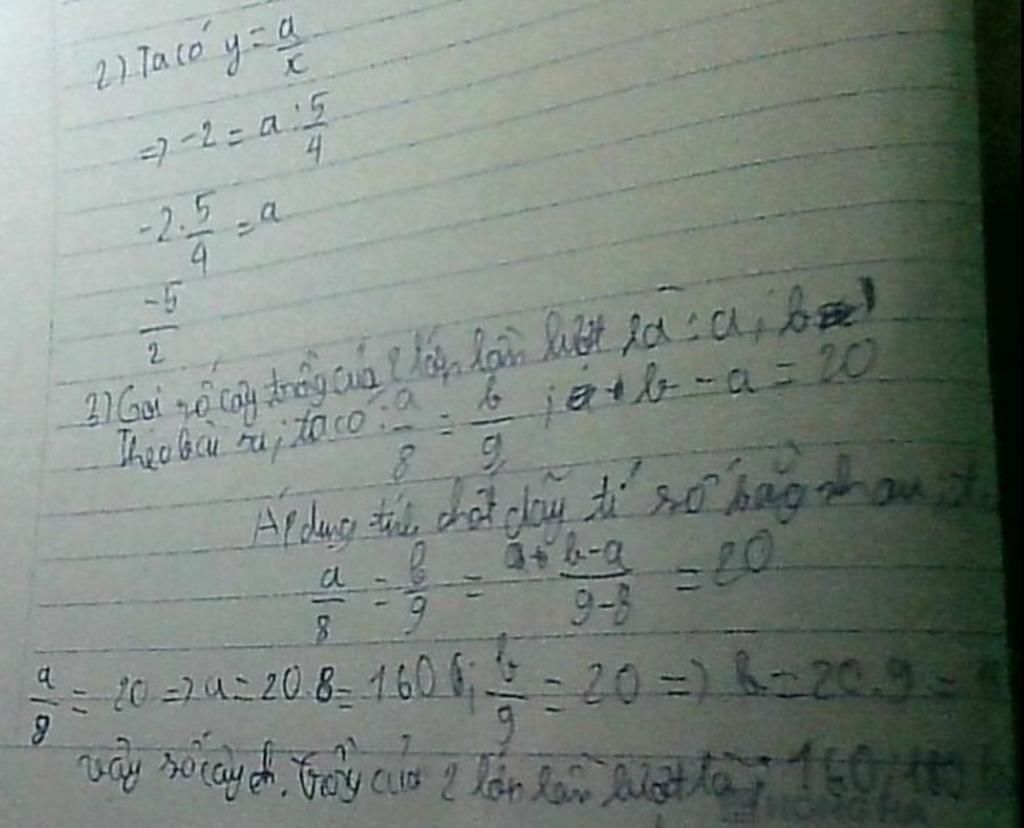 2) Ta có y = a/x
=> -2 = a : 5/4
-2 . 5/4 = a
-5/2
3) Gọi số cây trồng của 2 lớp lần lượt là : a ; b
Theo bài ra, ta có : a/8 = b/9 ; b - a = 20
Áp dụng tính chất dãy tỉ số bằng nhau,
a/8 = b/9 = b-a/9-8 = 20
a/8 = 20 => a = 20.8 = 160 ; b/9 = 20 => b = 20.9 =
vậy số cây trồng của 2 lớp lần lượt là : 160, 180
HONG HA